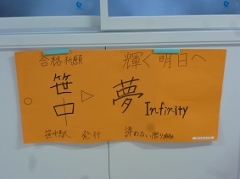 合格祈願
輝く明日へ
笹中 ▷ 夢 Infinity
笹中駅 発行